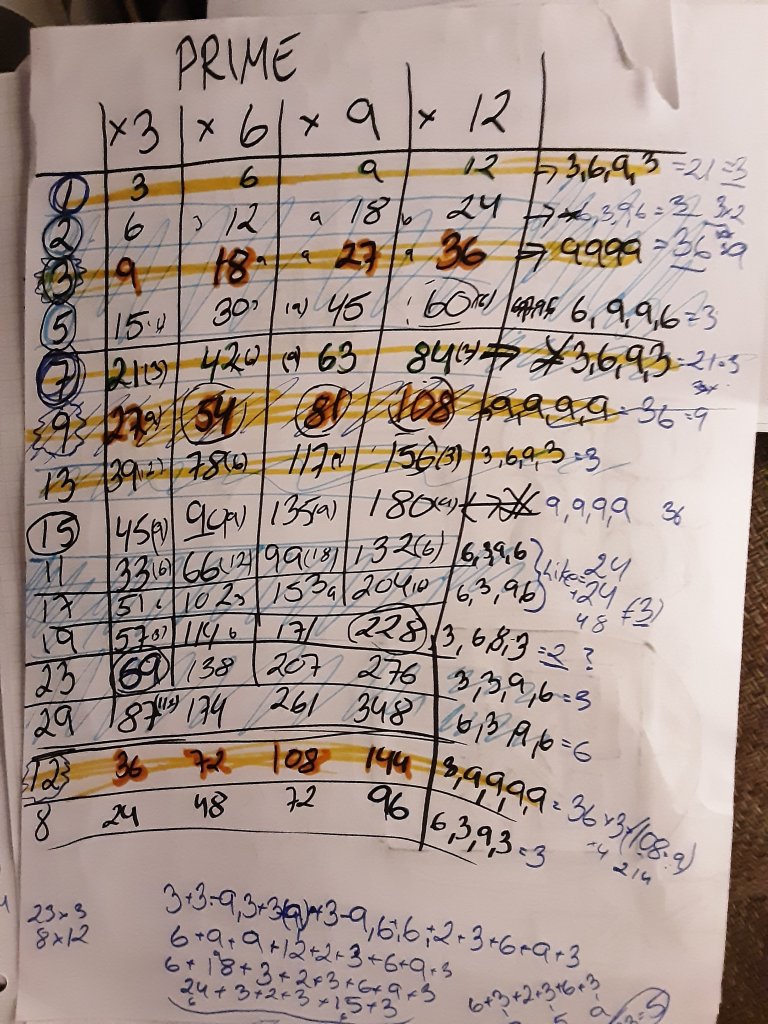 PRIME
×3 × 6 × 9 × 12
1 3 6 9 12 → 3,6,9,3 =21=3
2 6 12 18 24 → 6,3,9,6 = 3×2
3 9 18 27 36 → 9999 = 36 9
5 15 30 45 60 6,9,9,6 =3
7 21(3) 42(6) (9) 63 84(3) → 3,6,9,3 =21=3
9 27(9) 54 81 108 9,9,9,9 = 36 =9
13 39(12) 78(6) 117(9) 156(3) 3,6,9,3 =3
15 45(9) 90(9) 135(9) 180(9) 9,9,9,9 36
11 33(6) 66(12) 99(18) 132(6) 6,3,9,6 } like=24
17 51 6 102 3 153 9 204 6 6,3,9,6 +24
48 (3)
19 57(3) 114 6 171 228 3,6,8,3 =2 ?
23 69 138 207 276 3,3,9,6 =3
29 87(15) 174 261 348 6,3,9,6 =6
12 36 72 108 144 9,9,9,9 = 36×3 (108=9)
8 24 48 72 96 6,3,9,3 =3
23×3
8×12
6+9+9+12+2+3+6+9+3
6+18+3+2+3+6+9+3
24+3+2+3+15+3
6+3+2+3+6+3